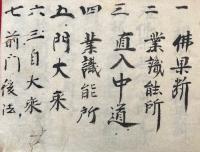 一 佛果断
二 業識能所
三 直入中道
四 業識能所
五 門大来
六 三自大来
七 前门後法